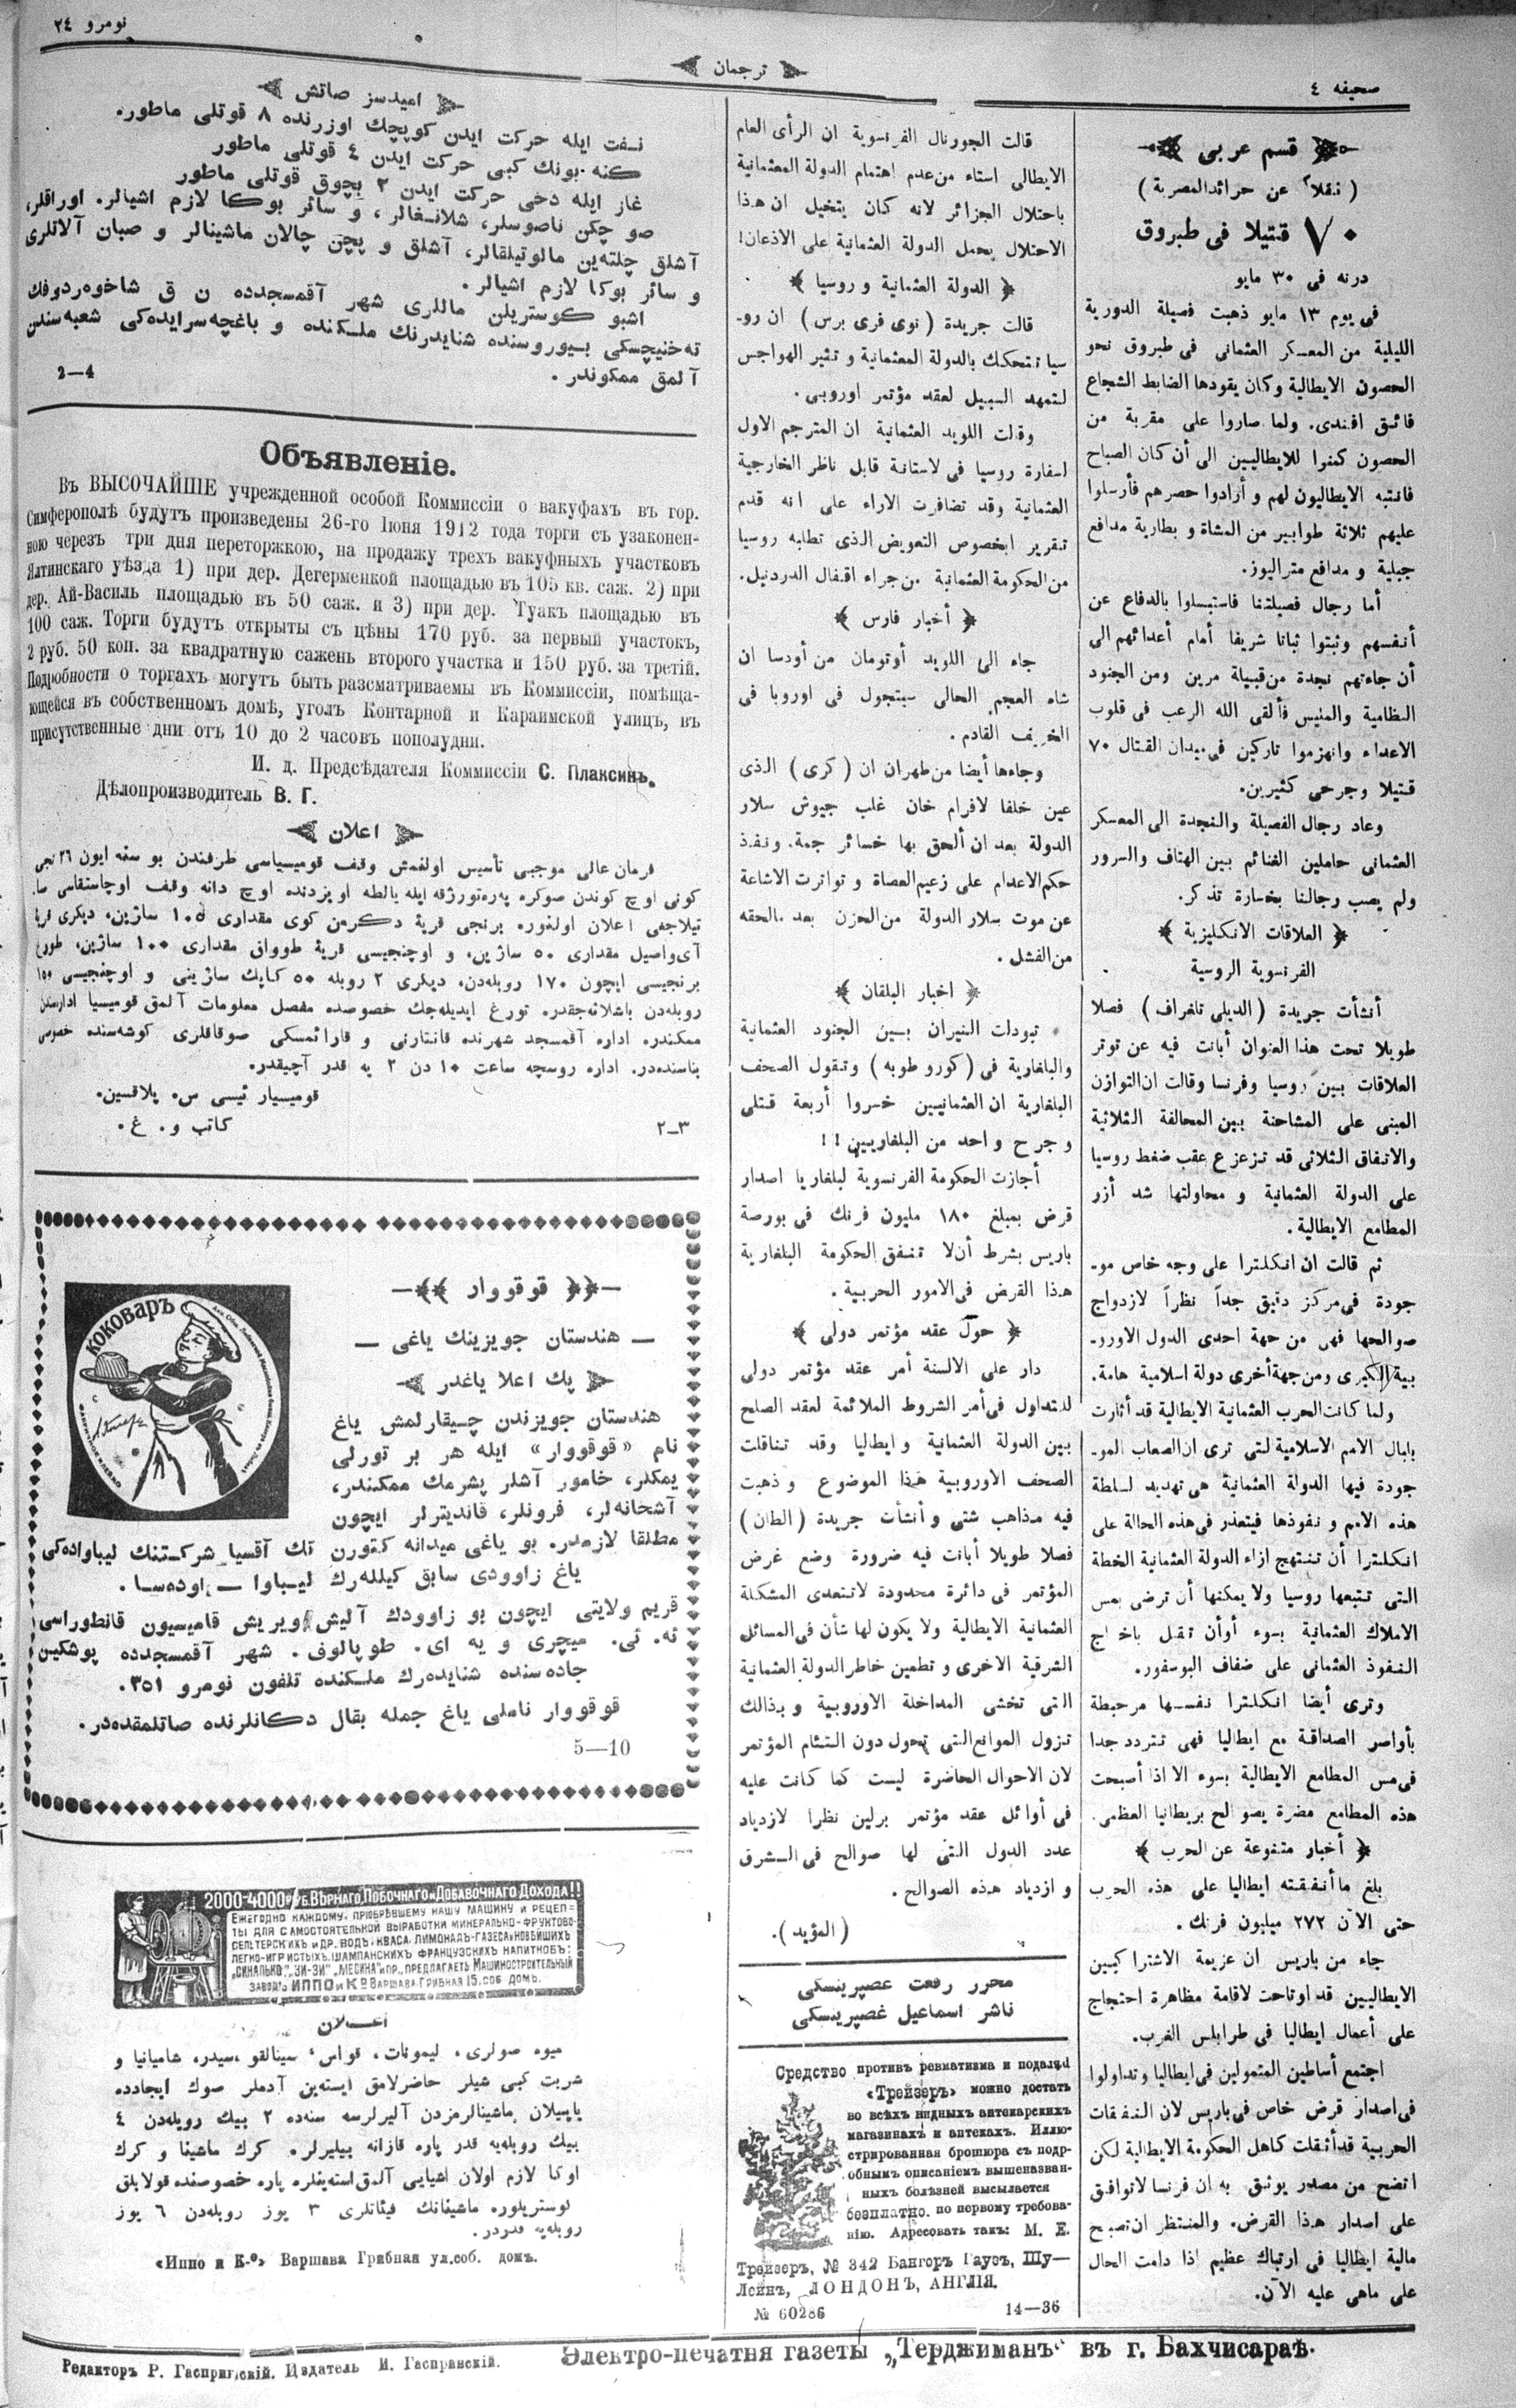 صحيفه ٤
ترجمان
نومرو ٢٤
قسم عربى
( نقلاً عن جرائد المصرية )
٧٠ قتيلا فى طبروق
درنه فى ٣٠ مايو
فى يوم ١٣ مايو ذهبت فصيلة الدورية
الليلية من المعسكر العثمانى فى طبروق نحو
الحصون الايطالية وكان يقودها الضابط الشجاع
فائق افندى. ولما صاروا على مقربة من
الحصون كمنوا للايطاليين الى أن كان الصباح
فانتبه الايطاليون لهم و أرادوا حصرهم فأرسلوا
عليهم ثلاثة طوابير من المشاة و بطارية مدافع
جبلية و مدافع متراليوز.
أما رجال فصيلتنا فاستبسلوا بالدفاع عن
أنفسهم وثبتوا ثباتا شريفا أمام أعدائهم الى
أن جاءتهم نجدة من قبيلة مرين ومن الجنود
النظامية والمنيس فألقى الله الرعب فى قلوب
الاعداء وانهزموا تاركين فى ميدان القتال ٧٠
قتيلا وجرحى كثيرين.
وعاد رجال الفصيلة والنجدة الى المعسكر
العثمانى حاملين الغنائم بين الهتاف والسرور
ولم يصب رجالنا بخسارة تذكر.
﴿ العلاقات الانكليزية ﴾
الفرنسوية الروسية
أنشأت جريدة (الديلى تلغراف) فصلا
طويلا تحت هذا العنوان أبانت فيه عن توتر
العلاقات بين روسيا وفرنسا وقالت ان التوازن
المبنى على المشاحنة بين المحالفة الثلاثية
والاتفاق الثلاثى قد تزعزع عقب ضغط روسيا
على الدولة العثمانية و محاولتها شد أزر
المطامع الايطالية.
ثم قالت ان انكلترا على وجه خاص مو-
جودة فى مركز دقيق جداً نظراً لازدواج
صوالحها فهى من جهة احدى الدول الاورو-
بية الكبرى ومن جهة أخرى دولة اسلامية هامة.
ولما كانت الحرب العثمانية الايطالية قد أثارت
بابال الامم الاسلامية لتى ترى ان الصعاب المو-
جودة فيها الدولة العثمانية هى تهديد لسلطة
هذه الامم و نفوذها فيتعذر فى هذه الحالة على
انكلترا أن تنتهج ازاء الدولة العثمانية الخطة
التى تتبعها روسيا ولا يمكنها أن ترضى بمس
الاملاك العثمانية بسوء أو أن تقبل باخراج
النفوذ العثمانى على ضفاف البوسفور.
وترى أيضا انكلترا نفسها مرتبطة
بأواصر الصداقة مع ايطاليا فهى تتردد جدا
فى مس المطامع الايطالية بسوء الا اذا أصبحت
هذه المطامع مضرة بصوالح بريطانيا العظمى.
﴿ أخبار متنوعة عن الحرب ﴾
بلغ ما أنفقته ايطاليا على هذه الحرب
حتى الآن ٢٧٢ ميليون فرنك.
جاء من باريس ان عزيمة الاشتراكيين
الايطاليين قد اوتاحت لاقامة مظاهرة احتجاج
على أعمال ايطاليا فى طرابلس الغرب.
اجتمع أساطين المتمولين فى ايطاليا وتداولوا
فى اصدار قرض خاص فى باريس لان النفقات
الحربية قد أثقلت كاهل الحكومة الايطالية لكن
اتضح من مصدر يوثق به ان فرنسا لاتوافق
على اصدار هذا القرض. والمنتظر ان تصبح
مالية ايطاليا فى ارتباك عظيم اذا دامت الحال
على ماهى عليه الآن.
قالت الجوورنال الفرنسوية ان الرأى العام
الايطالى استاء من عدم اهتمام الدولة العثمانية
باحتلال الجزائر لانه كان يتخيل ان هذا
الاحتلال يحمل الدولة العثمانية على الاذعان!
﴿ الدولة العثمانية و روسيا ﴾
قالت جريدة (نوى فرى برس) ان رو-
سيا تتحكك بالدولة العثمانية و تثير الهواجس
لتمهد السبيل لعقد مؤتمر اوروبى.
وقالت اللويد العثمانية ان المترجم الاول
لسفارة روسيا فى لاستانة قابل ناظر الخارجية
العثمانية وقد تضافرت الاراء على انه قدم
تقرير ابخصوص التعويض الذى تطلبه روسيا
من الحكومة العثمانية من جراء اقفال الدردنيل.
﴿ أخبار فارس ﴾
جاء الى اللويد أوتومان من أودسا ان
شاه العجم الحالى سيتجول فى اوروبا فى
الخريف القادم.
وجاءها أيضا من طهران ان (كرى) الذى
عين خلفا لافرام خان غلب جيوش سلار
الدولة بعد ان ألحق بها خسائر جمة. ونفذ
حكم الاعدام على زعيم العصاة و تواترت الاشاعة
عن موت سلار الدولة من الحزن بعد مالحقه
من الفشل.
﴿ اخبار البلقان ﴾
تبودلت النيران بين الجنود العثمانية
والبلغارية فى (كورو طوبه) وتقول الصحف
البلغارية ان العثمانيين خسروا أربعة قتلى
و جرح واحد من البلغاريين!!
أجازت الحكومة الفرنسوية لبلغاريا اصدار
قرض بمبلغ ١٨٠ مليون فرنك فى بورصة
باريس بشرط أن لا تنفق الحكومة البلغارية
هذا القرض فى الامور الحربية.
﴿ حول عقد مؤتمر دولى ﴾
دار على الالسنة أمر عقد مؤتمر دولى
للتداول فى أمر الشروط الملائمة لعقد الصلح
بين الدولة العثمانية و ايطاليا وقد تناقلت
الصحف الاوروبية هذا الموضوع و ذهبت
فيه مذاهب شتى و أنشأت جريدة (الطان)
فصلا طويلا أبانت فيه ضرورة وضع غرض
المؤتمر فى دائرة محدودة لاتتعدى المشكلة
العثمانية الايطالية ولا يكون لها شأن فى المسائل
الشرقية الاخرى و تطمين خاطر الدولة العثمانية
التى تخشى المداخلة الاوروبية و بذالك
تزول الموانع التى تحول دون التئام المؤتمر
لان الاحوال الحاضرة ليست كما كانت عليه
فى أوائل عقد مؤتمر برلين نظرا لازدياد
عدد الدول التى لها صوالح فى الشرق
و ازدياد هذه الصوالح.
(المؤيد).
محرر رفعت غصپرينسكى
ناشر اسماعيل غصپرينسكى
Средство противъ ревматизма и подагры
«Трейзеръ» можно достать
во всѣхъ видныхъ аптекарскихъ
магазинахъ и аптекахъ. Иллю-
стрированная брошюра съ подр-
обнымъ описаніемъ вышеназван-
ныхъ болѣзней высылается
безплатно. по первому требова-
нію. Адресовать такъ: М. Е.
Трейзеръ, № 342 Бангоръ Гаузъ, Шу—
Лейнъ, ЛОНДОНЪ, АНГЛІЯ.
№ 60286 14—36
اميدسز صاتش
نفت ايله حركت ايدن كوپچك اوزرنده ٨ قوتلى ماطور.
كنه بونك كبى حركت ايدن ٤ قوتلى ماطور
غاز ايله دخى حركت ايدن ٢ بچوق قوتلى ماطور
صو چكن ناصوسلر، شلانغالر، و سائر بوكا لازم اشيالر. اوراقلر،
آشلق چلته‌ين مالوتيلقالر، آشلق و پچن چالان ماشينالر و صبان آلاتلرى
و سائر بوكا لازم اشيالر.
اشبو كوستريلن ماللرى شهر آقمسجدده ن ق شاخوه‌ردوفك
ته‌خنيچسكى بيوروسنده شنايدرنك ملكنده و باغچه‌سرايده‌كى شعبه‌سندن
آلمق ممكوندر.
2—4
Объявленіе.
Въ ВЫСОЧАЙШЕ учрежденной особой Коммиссіи о вакуфахъ въ гор.
Симферополѣ будутъ произведены 26-го Іюня 1912 года торги съ узаконен-
ною черезъ три дня переторжкою, на продажу трехъ вакуфныхъ участковъ
Ялтинскаго уѣзда 1) при дер. Дегерменкой площадью въ 105 кв. саж. 2) при
дер. Ай-Василь площадью въ 50 саж. и 3) при дер. Туакъ площадью въ
100 саж. Торги будутъ открыты съ цѣны 170 руб. за первый участокъ,
2 руб. 50 коп. за квадратную сажень второго участка и 150 руб. за третій.
Подробности о торгахъ могутъ быть разсматриваемы въ Коммиссіи, помѣща-
ющейся въ собственномъ домѣ, уголъ Контарной и Караимской улицъ, въ
присутственные дни отъ 10 до 2 часовъ пополудни.
И. д. Предсѣдателя Коммиссіи С. Плаксинъ.
Дѣлопроизводитель В. Г.
اعلان
فرمان عالى موجبى تأسيس اولغمش وقف قوميسياسى طرفندن بو سنه ايون ٢٦ نجى
كونى اوچ كوندن صوكره په‌ره‌تورژقه ايله يالطه اويزدنده اوچ دانه وقف اوچاستقاسى صا-
تيلاجغى اعلان اولنور. برنجى قريۀ دكرمن كوى مقدارى ١٠٥ ساژين، ديكرى قريۀ
آى‌واصيل مقدارى ٥٠ ساژين، و اوچنجيسى قريۀ طوواق مقدارى ١٠٠ ساژين، طورغ
برنجيسى ايچون ١٧٠ روبله‌دن، ديكرى ٢ روبله ٥٠ كاپك ساژينى و اوچنجيسى ١٥٠
روبله‌دن باشلانه‌جقدر. تورغ ايديله‌جك خصوصده مفصل معلومات آلمق قوميسيا اداره‌سندن
ممكندر. اداره آقمسجد شهرنده قانتارنى و قارائمسكى صوقاقلرى كوشه‌سنده خصوصى
بناسنده‌در. اداره روسچه ساعت ١٠ دن ٢ يه قدر آچيقدر.
قوميسيار ئيسى س. پلاقسين.
كاتب و. غ.
٢—٣
قوقووار
— هندستان جويزينك ياغى —
پك اعلا ياغدر
هندستان جويزندن چيقارلمش ياغ
نام «قوقووار» ايله هر بر تورلى
يمكلر، خامور آشلر پشرمك ممكندر،
آشخانه‌لر، فرونلر، قانديترلر ايچون
مطلقا لازمدر. بو ياغى ميدانه كتورن تك آقسيا شركتنك ليباواده‌كى
ياغ زاوودى سابق كيلله‌رك ليباوا — اوده‌سا.
قريم ولايتى ايچون بو زاوودك آليش ويريش قاميسيون قانطوراسى
ئه. ئى. ميچرى و يه اى. طوپالوف. شهر آقمسجدده پوشكين
جاده‌سنده شنايده‌رك ملكنده تلفون نومرو ٣٥١.
قوقووار ناملى ياغ جمله بقال دكانلرنده صاتلمقده‌در.
5—10
КОКОВАРЪ
2000-4000 руб. Вѣрнаго, Побочнаго и Добавочнаго Дохода!!
Ежегодно каждому, пріобрѣвшему нашу машину и рецеп=
ты для самостоятельной выработки минерально-фруктово-
сельтерскихъ и др. водъ, кваса, лимонадъ-газеса и новѣйшихъ
легко-игристыхъ, шампанскихъ французскихъ напитковъ:
„СИНАЛЬКО", „ЗИ-ЗИ", „МЕСИНА" и пр., предлагаетъ Машиностроительный
заводъ ИППО и Кº Варшава, Грибная 15, соб. домъ.
اعلان
ميوه صولرى، ليمونات، قواس، سينالقو، سيدر، شاميانيا و
شربت كبى شيلر حاضرلامق ايسته‌ين آدملر صوك ايجادده
ياپيلان ماشينالرمزدن آليرلرسه سنه‌ده ٢ بيك روبله‌دن ٤
بيك روبله‌يه قدر پاره قازانه بيليرلر. كرك ماشينا و كرك
اوكا لازم اولان اشيايى آلمق استه‌ينلره پاره خصوصنده قولايلق
كوستريلور. ماشينانك فيئاتلرى ٣ يوز روبله‌دن ٦ يوز
روبله‌يه قدردر.
«Иппо и К-º» Варшава Грибная ул. соб. домъ.
Редакторъ Р. Гаспринскій. Издатель И. Гаспринскій.
Электро-печатня газеты „Терджиманъ" въ г. Бахчисараѣ.